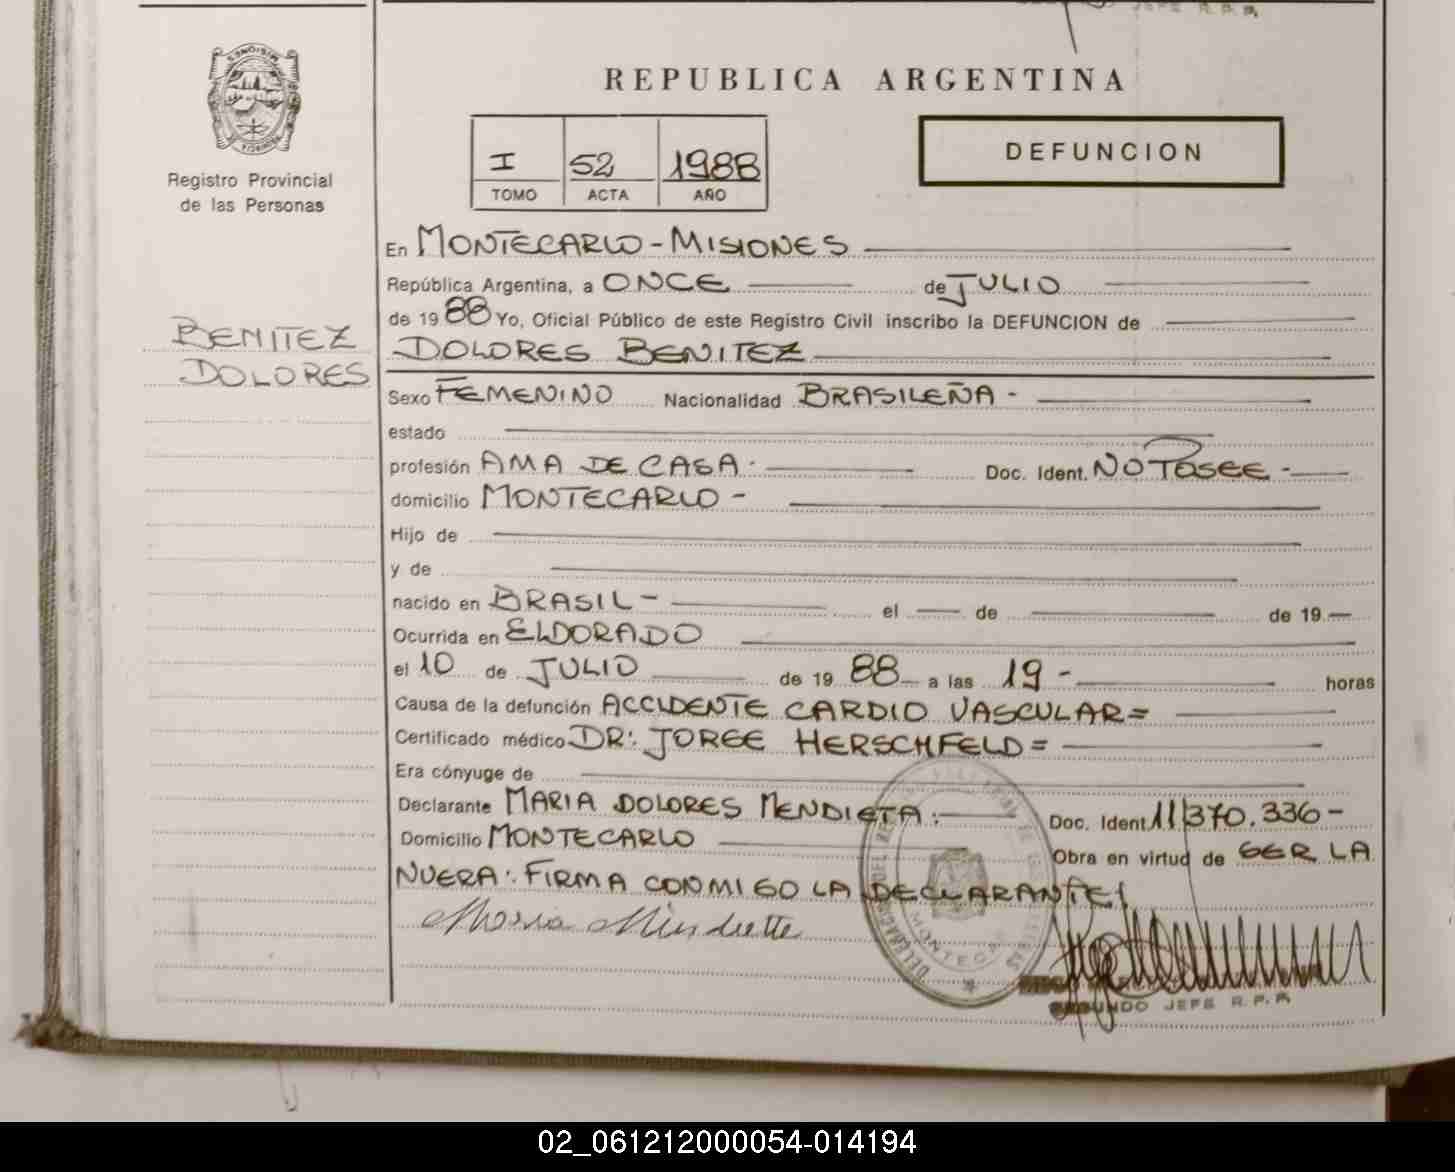 JEFE R.P.P.
MISIONES
PROVINCIA
Registro Provincial
de las Personas
REPUBLICA ARGENTINA
I 52 1988
TOMO ACTA AÑO
DEFUNCION
BENITEZ
DOLORES
En MONTECARLO - MISIONES
República Argentina, a ONCE de JULIO
de 1988 Yo, Oficial Público de este Registro Civil inscribo la DEFUNCION de
DOLORES BENITEZ
Sexo FEMENINO Nacionalidad BRASILEÑA -
estado
profesión AMA DE CASA. Doc. Ident. NO POSEE -
domicilio MONTECARLO -
Hijo de
y de
nacido en BRASIL - el de de 19
Ocurrida en ELDORADO
el 10 de JULIO de 19 88 a las 19 - horas
Causa de la defunción ACCIDENTE CARDIO VASCULAR=
Certificado médico DR: JORGE HERSCHFELD=
Era cónyuge de
Declarante MARIA DOLORES MENDIETA: Doc. Ident. 11.370.336-
Domicilio MONTECARLO Obra en virtud de SER LA
NUERA: FIRMA CONMIGO LA DECLARANTE
Maria Mindiette
MONTECARLO
SEGUNDO JEFE R.P.P.
02_061212000054-014194